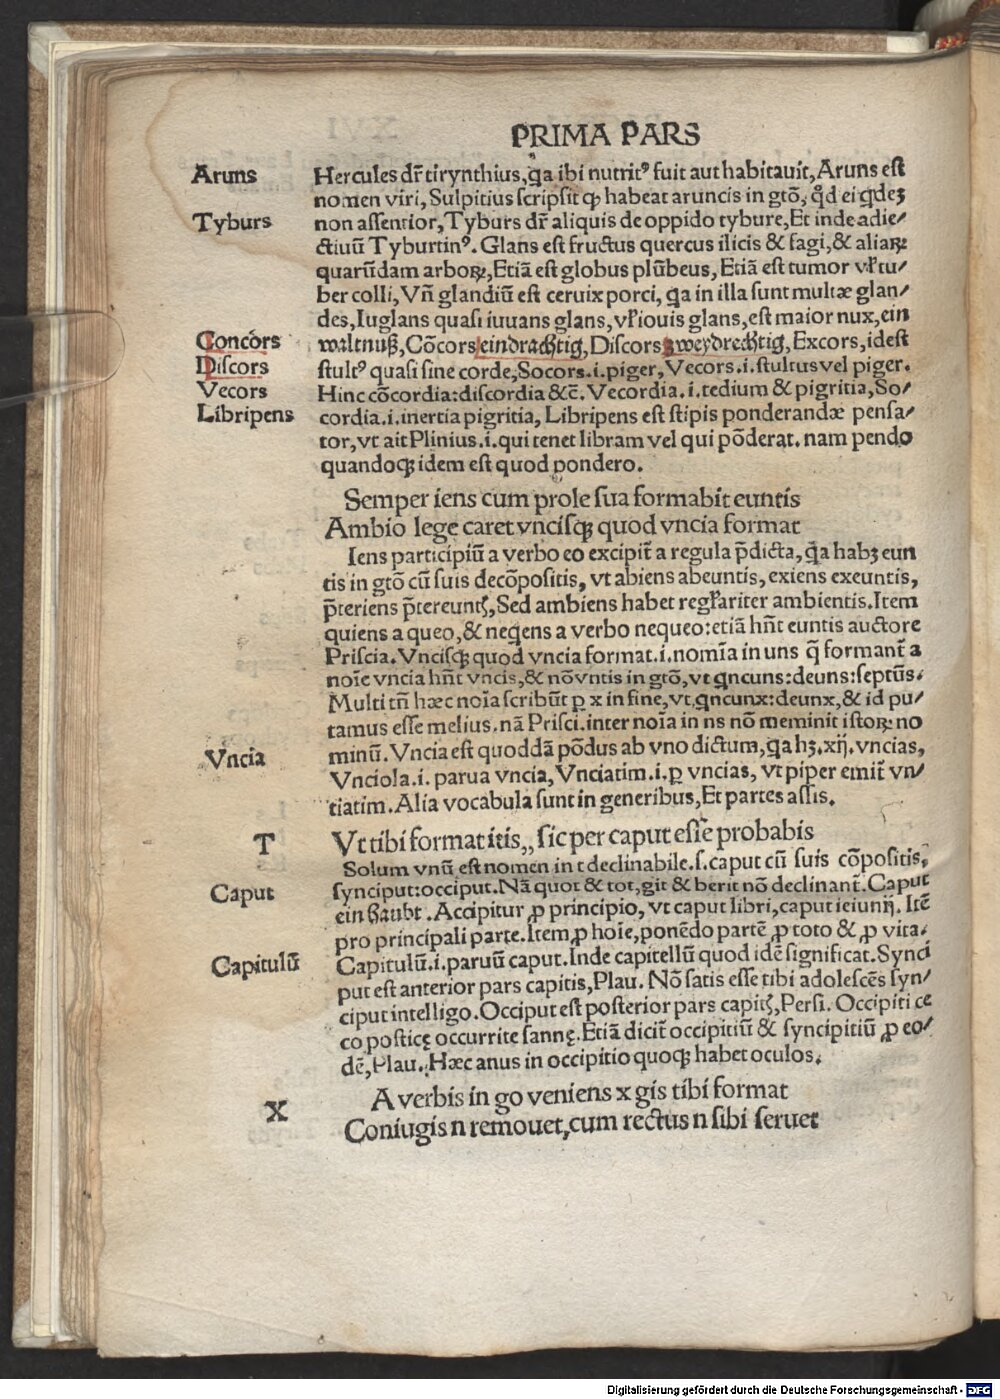 PRIMA PARS
Aruns Hercules dr̄ tirynthius, qa ibi nutritꝰ fuit aut habitauit, Aruns est
nomen viri, Sulpitius scripsit ꝙ habeat aruncis in gtō, qd ei qdeꝫ
Tyburs non assentior, Tyburs dr̄ aliquis de oppido tybure, Et inde adie/
ctiuū Tyburtinꝰ. Glans est fructus quercus ilicis & fagi, & aliaꝝ
quarūdam arboꝝ, Etiā est globus plūbeus, Etiā est tumor vl̓ tu/
ber colli, Vn̄ glandiū est ceruix porci, qa in illa sunt multæ glan/
des, Iuglans quasi iuuans glans, vl̓ iouis glans, est maior nux, ein
Concors waltnuß, Cōcors eindrachtig, Discors zweydrechtig, Excors, idest
Discors stultꝰ quasi sine corde, Socors .i. piger, Vecors .i. stultus vel piger.
Vecors Hinc cōcordia: discordia &c̄. Vecordia .i. tedium & pigritia, So/
Libripens cordia .i. inertia pigritia, Libripens est stipis ponderandæ pensa/
tor, vt ait Plinius .i. qui tenet libram vel qui pōderat. nam pendo
quandoqꝫ idem est quod pondero.
Semper iens cum prole sua formabit euntis
Ambio lege caret vncisqꝫ quod vncia format
Iens participiū a verbo eo excipit̄ a regula p̄dicta, qa habꝫ eun
tis in gtō cū suis decōpositis, vt abiens abeuntis, exiens exeuntis,
p̄teriens p̄tereuntꝭ, Sed ambiens habet regl̓ariter ambientis. Item
quiens a queo, & neqens a verbo nequeo: etiā hn̄t euntis auctore
Priscia. Vncisqꝫ quod vncia format .i. nomīa in uns q̄ formant̄ a
noīe vncia hn̄t vncis, & nō vntis in gtō, vt qncuns: deuns: septūs.
Multi tn̄ hæc noīa scribūt ꝑ x in fine, vt qncunx: deunx, & id pu/
tamus esse melius. nā Prisci. inter noīa in ns nō meminit istoꝝ no
Vncia minū. Vncia est quoddā pōdus ab vno dictum, qa hꝫ .xij. vncias,
Vnciola .i. parua vncia, Vnciatim .i. ꝑ vncias, vt piper emit̄ vn/
tiatim. Alia vocabula sunt in generibus, Et partes assis.
T Vt tibi format itis,, sic per caput esse probabis
Solum vnū est nomen in t declinabile .s. caput cū suis cōpositis,
Caput synciput: occiput. Nā quot & tot, git & berit nō declinant̄. Caput
ein haubt. Accipitur ꝓ principio, vt caput libri, caput ieiunij. Itē
pro principali parte. Item ꝓ hoīe, ponēdo partē ꝓ toto & ꝓ vita.
Capitulū Capitulū .i. paruū caput. Inde capitellū quod idē significat. Synci
put est anterior pars capitis, Plau. Nō satis esse tibi adolescēs syn/
ciput intelligo. Occiput est posterior pars capitꝭ, Persi. Occipiti ce
co posticę occurrite sannę. Etiā dicit̄ occipitiū & syncipitiū ꝓ eo/
dē, Plau. Hæc anus in occipitio quoqꝫ habet oculos.
A verbis in go veniens x gis tibi format
X Coniugis n remouet, cum rectus n sibi seruet
Digitalisierung gefördert durch die Deutsche Forschungsgemeinschaft - DFG